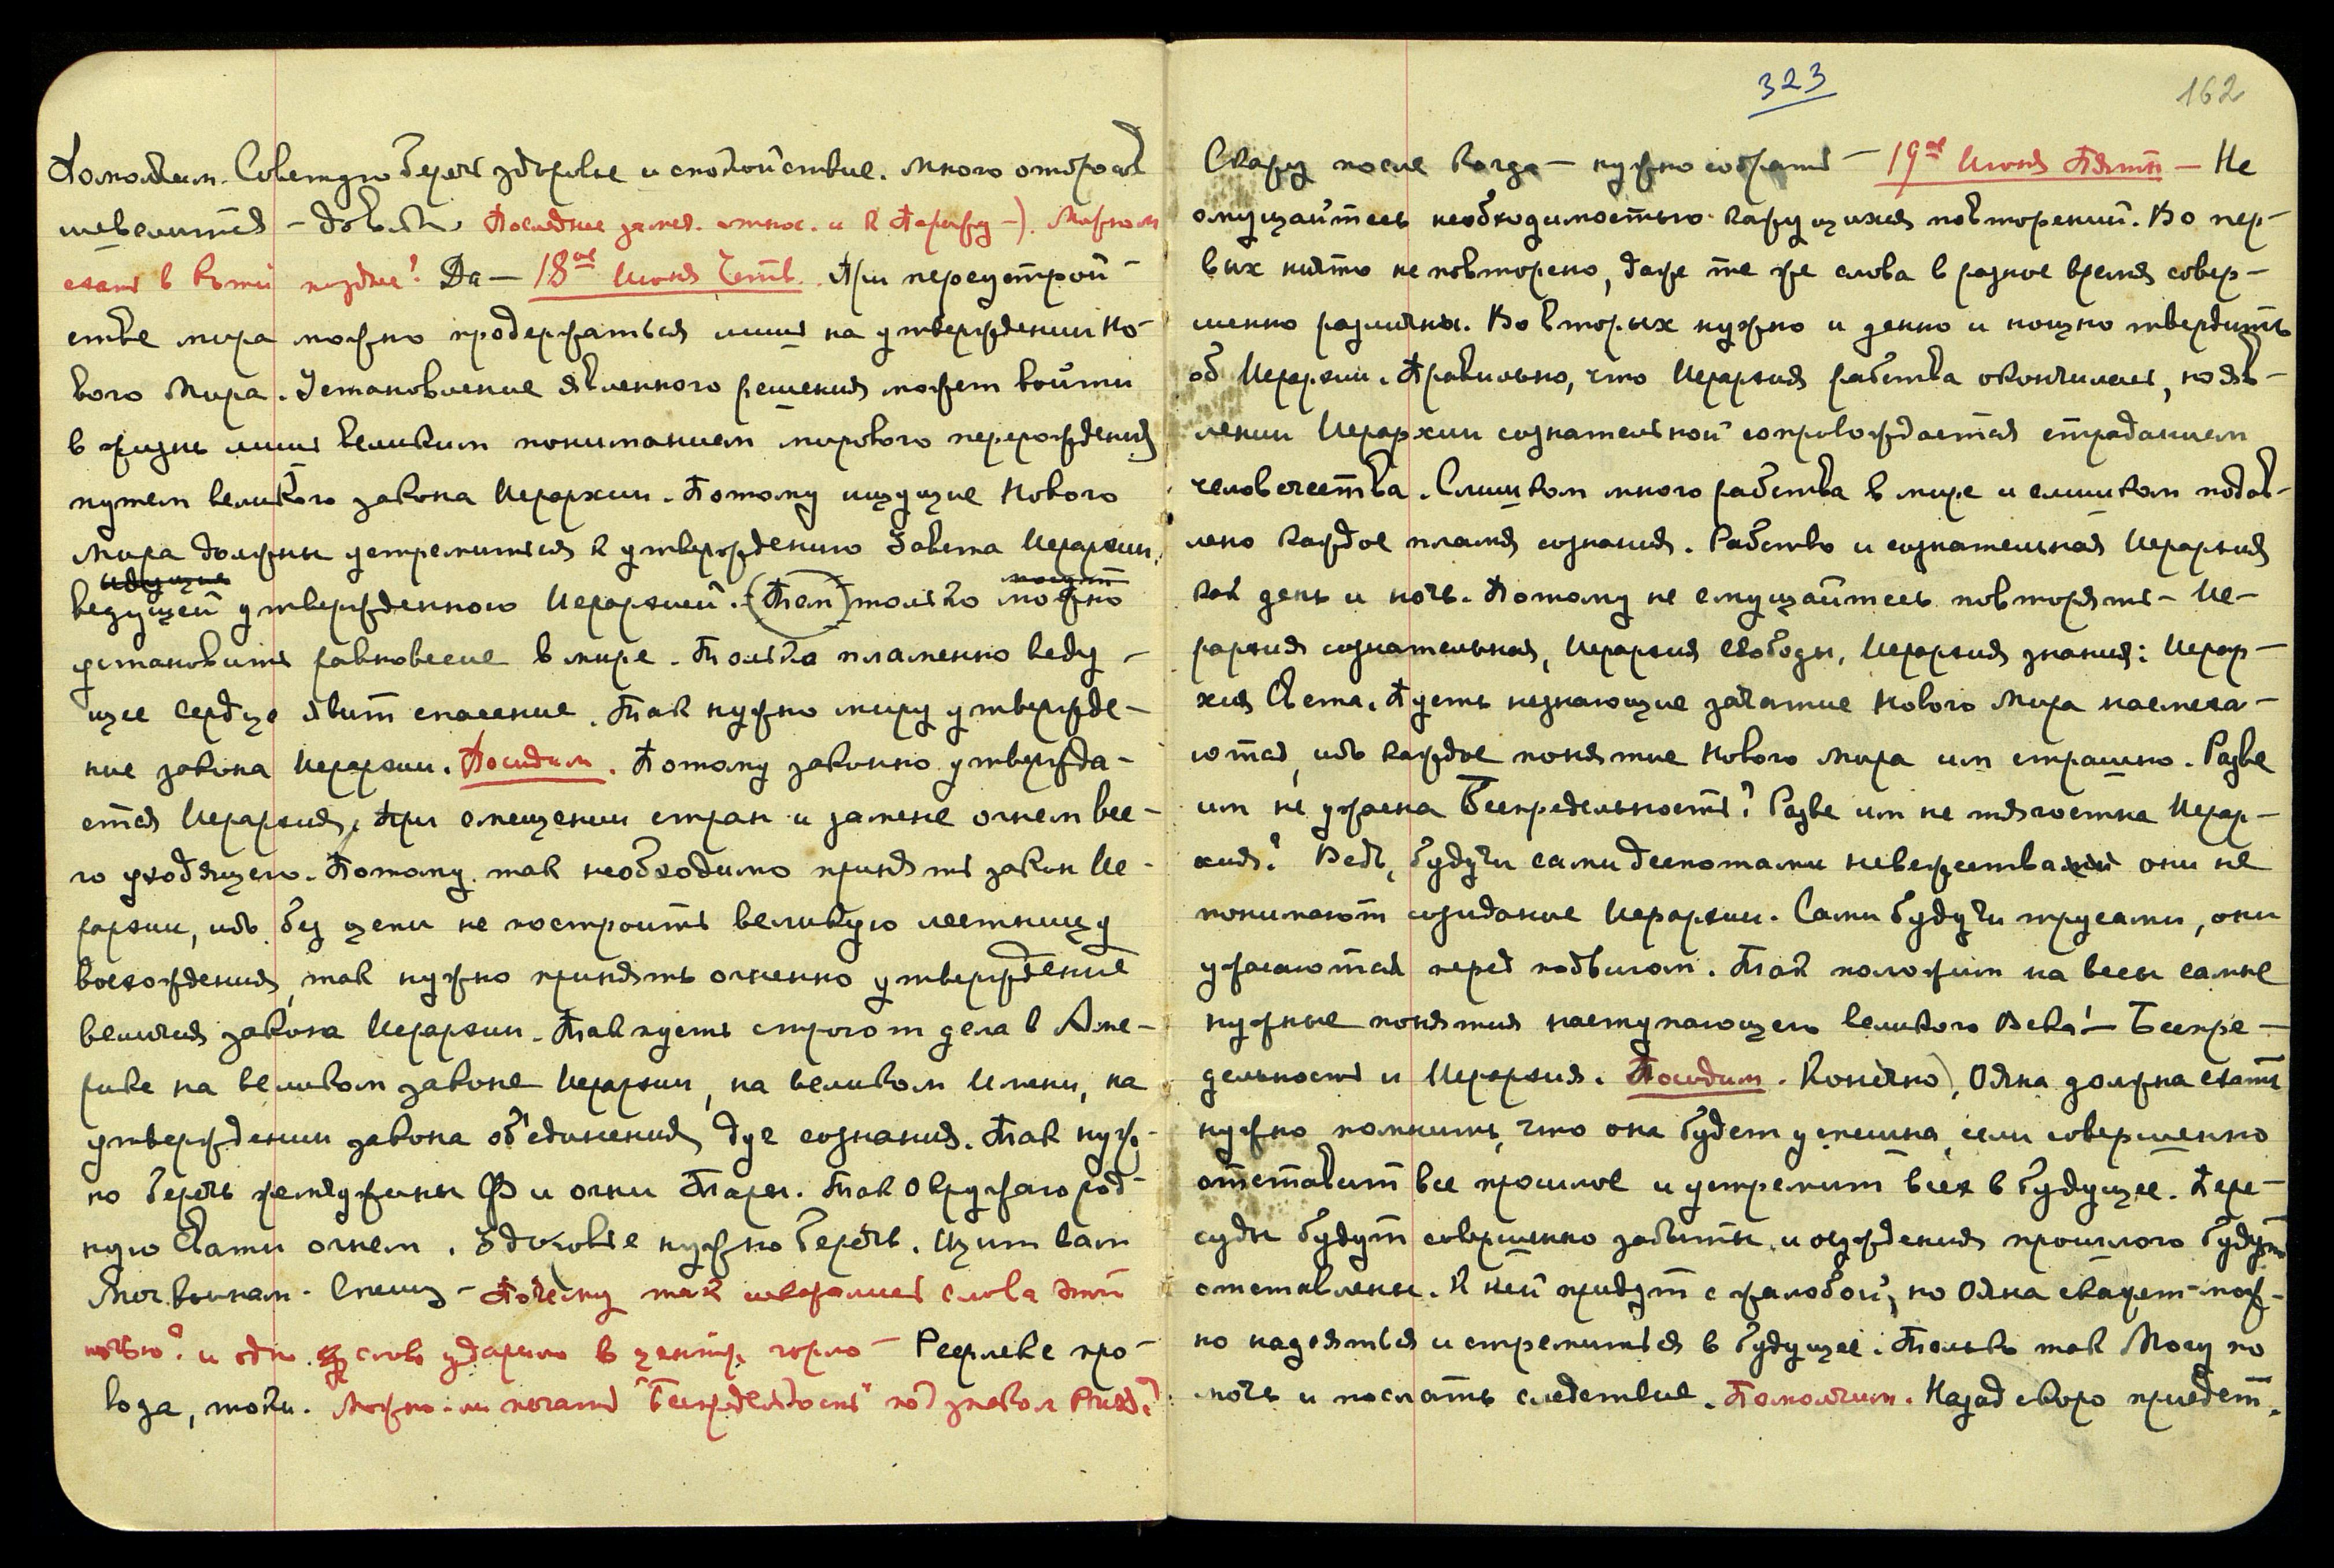 Помолчим. Советую беречь здоровье и спокойствие. Много отбросов
шевелится – довольно. Последнее замеч. относ. и к Парижу –). Можно ли
ехать в Кети позднее? Да – 18ое Июня Четв. При переустрой-
стве мира можно продержаться лишь на утверждении Но-
вого Мира. Установление явленного решения может войти
в жизнь лишь великим пониманием мирового перерождения
путем великого закона Иерархии. Потому ищущие Нового
Мира должны устремиться к утверждению Завета Иерархии,
идущие
ведущей утвержденного Иерархией. (Так) только можно
установить равновесие в мире. Только пламенно веду-
щее сердце явит спасение. Так нужно миру утвержде-
ние закона Иерархии. Посидим. Потому законно утвержда-
ется Иерархия, при смещении стран и замене огнем все-
го уходящего. Потому так необходимо принять закон Ие-
рархии, ибо без цепи не построить великую лестницу
восхождения, так нужно принять огненно утверждение
величия закона Иерархии. Так пусть строют дела в Аме-
рике на великом законе Иерархии, на великом Имени, на
утверждении закона об'единения дуг сознания. Так нуж-
но беречь жемчужины Ф и огни Тары. Так Окружаю род-
ную Свати огнем. Здоровье нужно беречь. Щит вам
Меч вынам. Спешу – Почему так исказились слова этой
ночью? и одно слово ударило в центр горло – Рефлекс про-
вода, токи. Можно-ли печатать "Беспредельность" под знаком
323
162
Скажу после когда – нужно собрать – 19ое Июня Пятн – Не
смущайтесь необходимостью кажущихся повторений. Во пер-
вых ничто не повторено, даже те же слова в разное время совер-
шенно различны. Во вторых нужно и денно и нощно твердить
об Иерархии. Правильно, что Иерархия рабства окончилась, но яв-
лении Иерархии сознательной сопровождается страданием
человечества. Слишком много рабства в мире и слишком подав-
лено каждое пламя сознания. Рабство и сознательная Иерархия
как день и ночь. Потому не смущайтесь повторять – Ие-
рархия сознательная, Иерархия свободы, Иерархия знания: Иерар-
хия Света. Пусть незнающие зачатие Нового Мира насмеха-
ются, ибо каждое понятие Нового Мира им страшно. Разве
им не ужасна Беспредельность? Разве им не тягостна Иерар-
хия? Ведь, будучи сами деспотами невежества они не
понимают созидание Иерархии. Сами будучи трусами, они
ужасаются перед подвигом. Так положим на весы самые
нужные понятия наступающего великого Века! – Беспре-
дельность и Иерархия. Посидим. Конечно, Ояна должна ехать
нужно помнить, что она будет успешна, если совершенно
отставит все прошлое и устремит всех в будущее. Пере-
суды будут совершенно забыты, и осуждения прошлого будут
отставлены. К ней придут с жалобой, но Ояна скажет – мож-
но надеяться и стремиться в будущее. Только так Могу по
мочь и послать следствие. Помолчим. Назад скоро приедет.